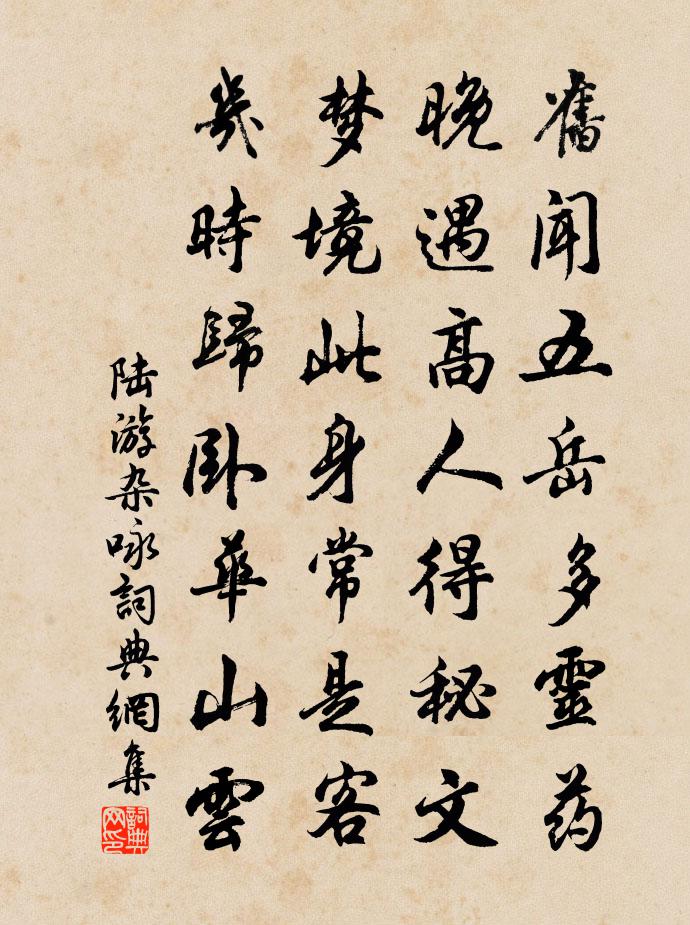 舊聞五岳多靈药
晚遇高人得秘文
梦境此身常是客
幾時歸卧華山雲
陆游杂咏詞典網集
詞典网印